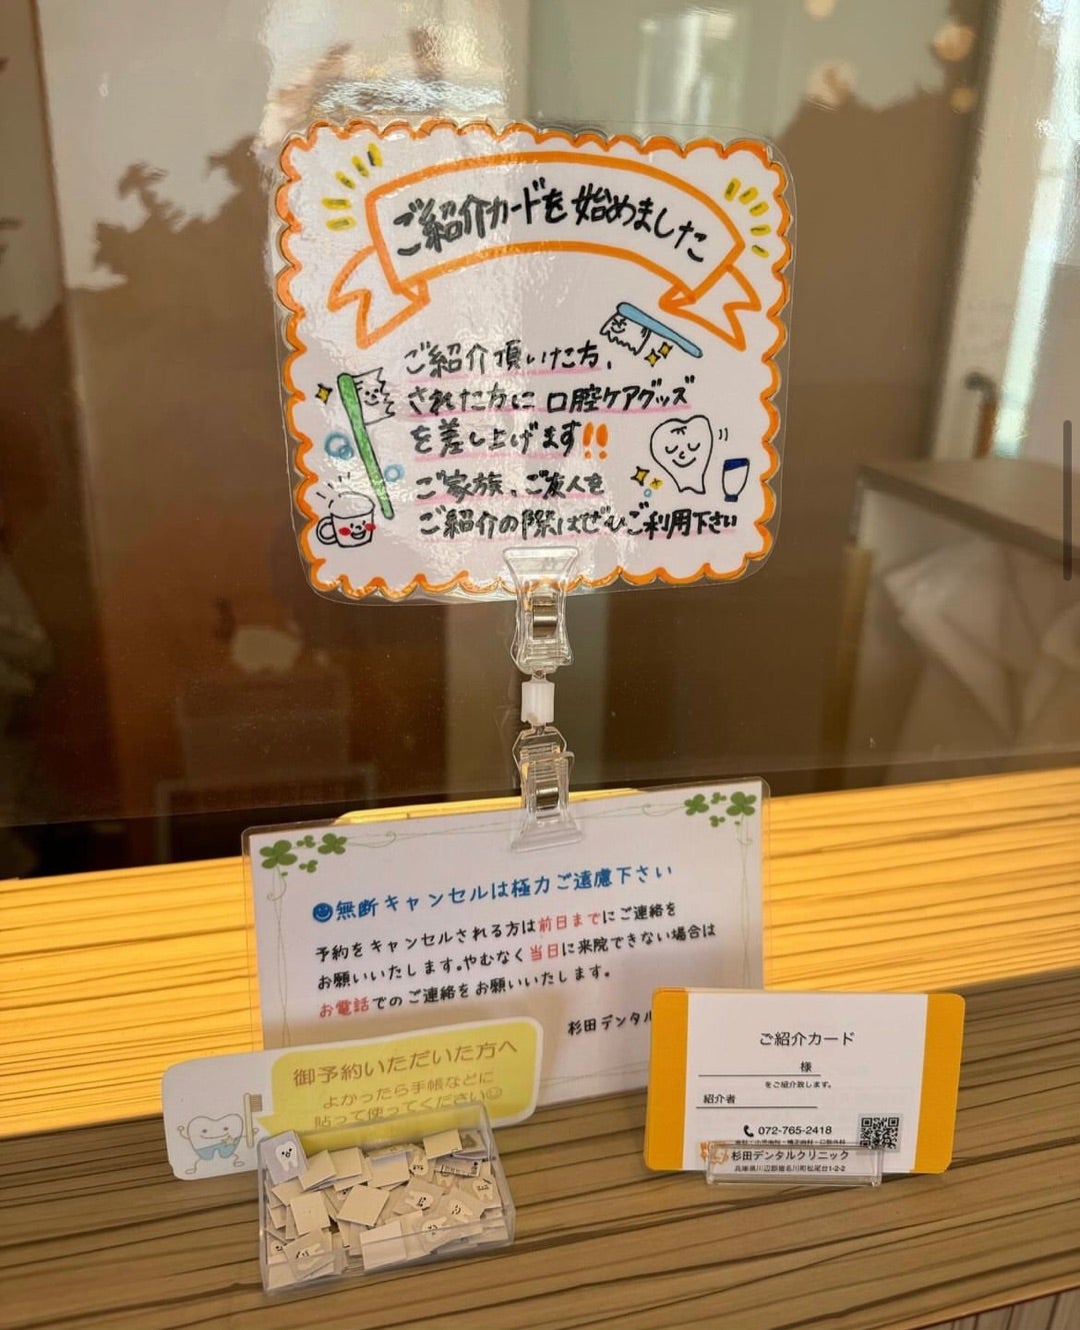 ご紹介カードを始めました
ご紹介頂いた方、
された方に口腔ケアグッズ
を差し上げます!!
ご家族、ご友人を
ご紹介の際はぜひご利用下さい
無断キャンセルは極力ご遠慮下さい
予約をキャンセルされる方は前日までにご連絡を
お願いいたします。やむなく当日に来院できない場合は
お電話でのご連絡をお願いいたします。
杉田デンタル
御予約いただいた方へ
よかったら手帳などに
貼って使ってください
ご紹介カード
様
をご紹介致します。
紹介者
072-765-2418
杉田デンタルクリニック
兵庫県川辺郡猪名川町松尾台1-2-2